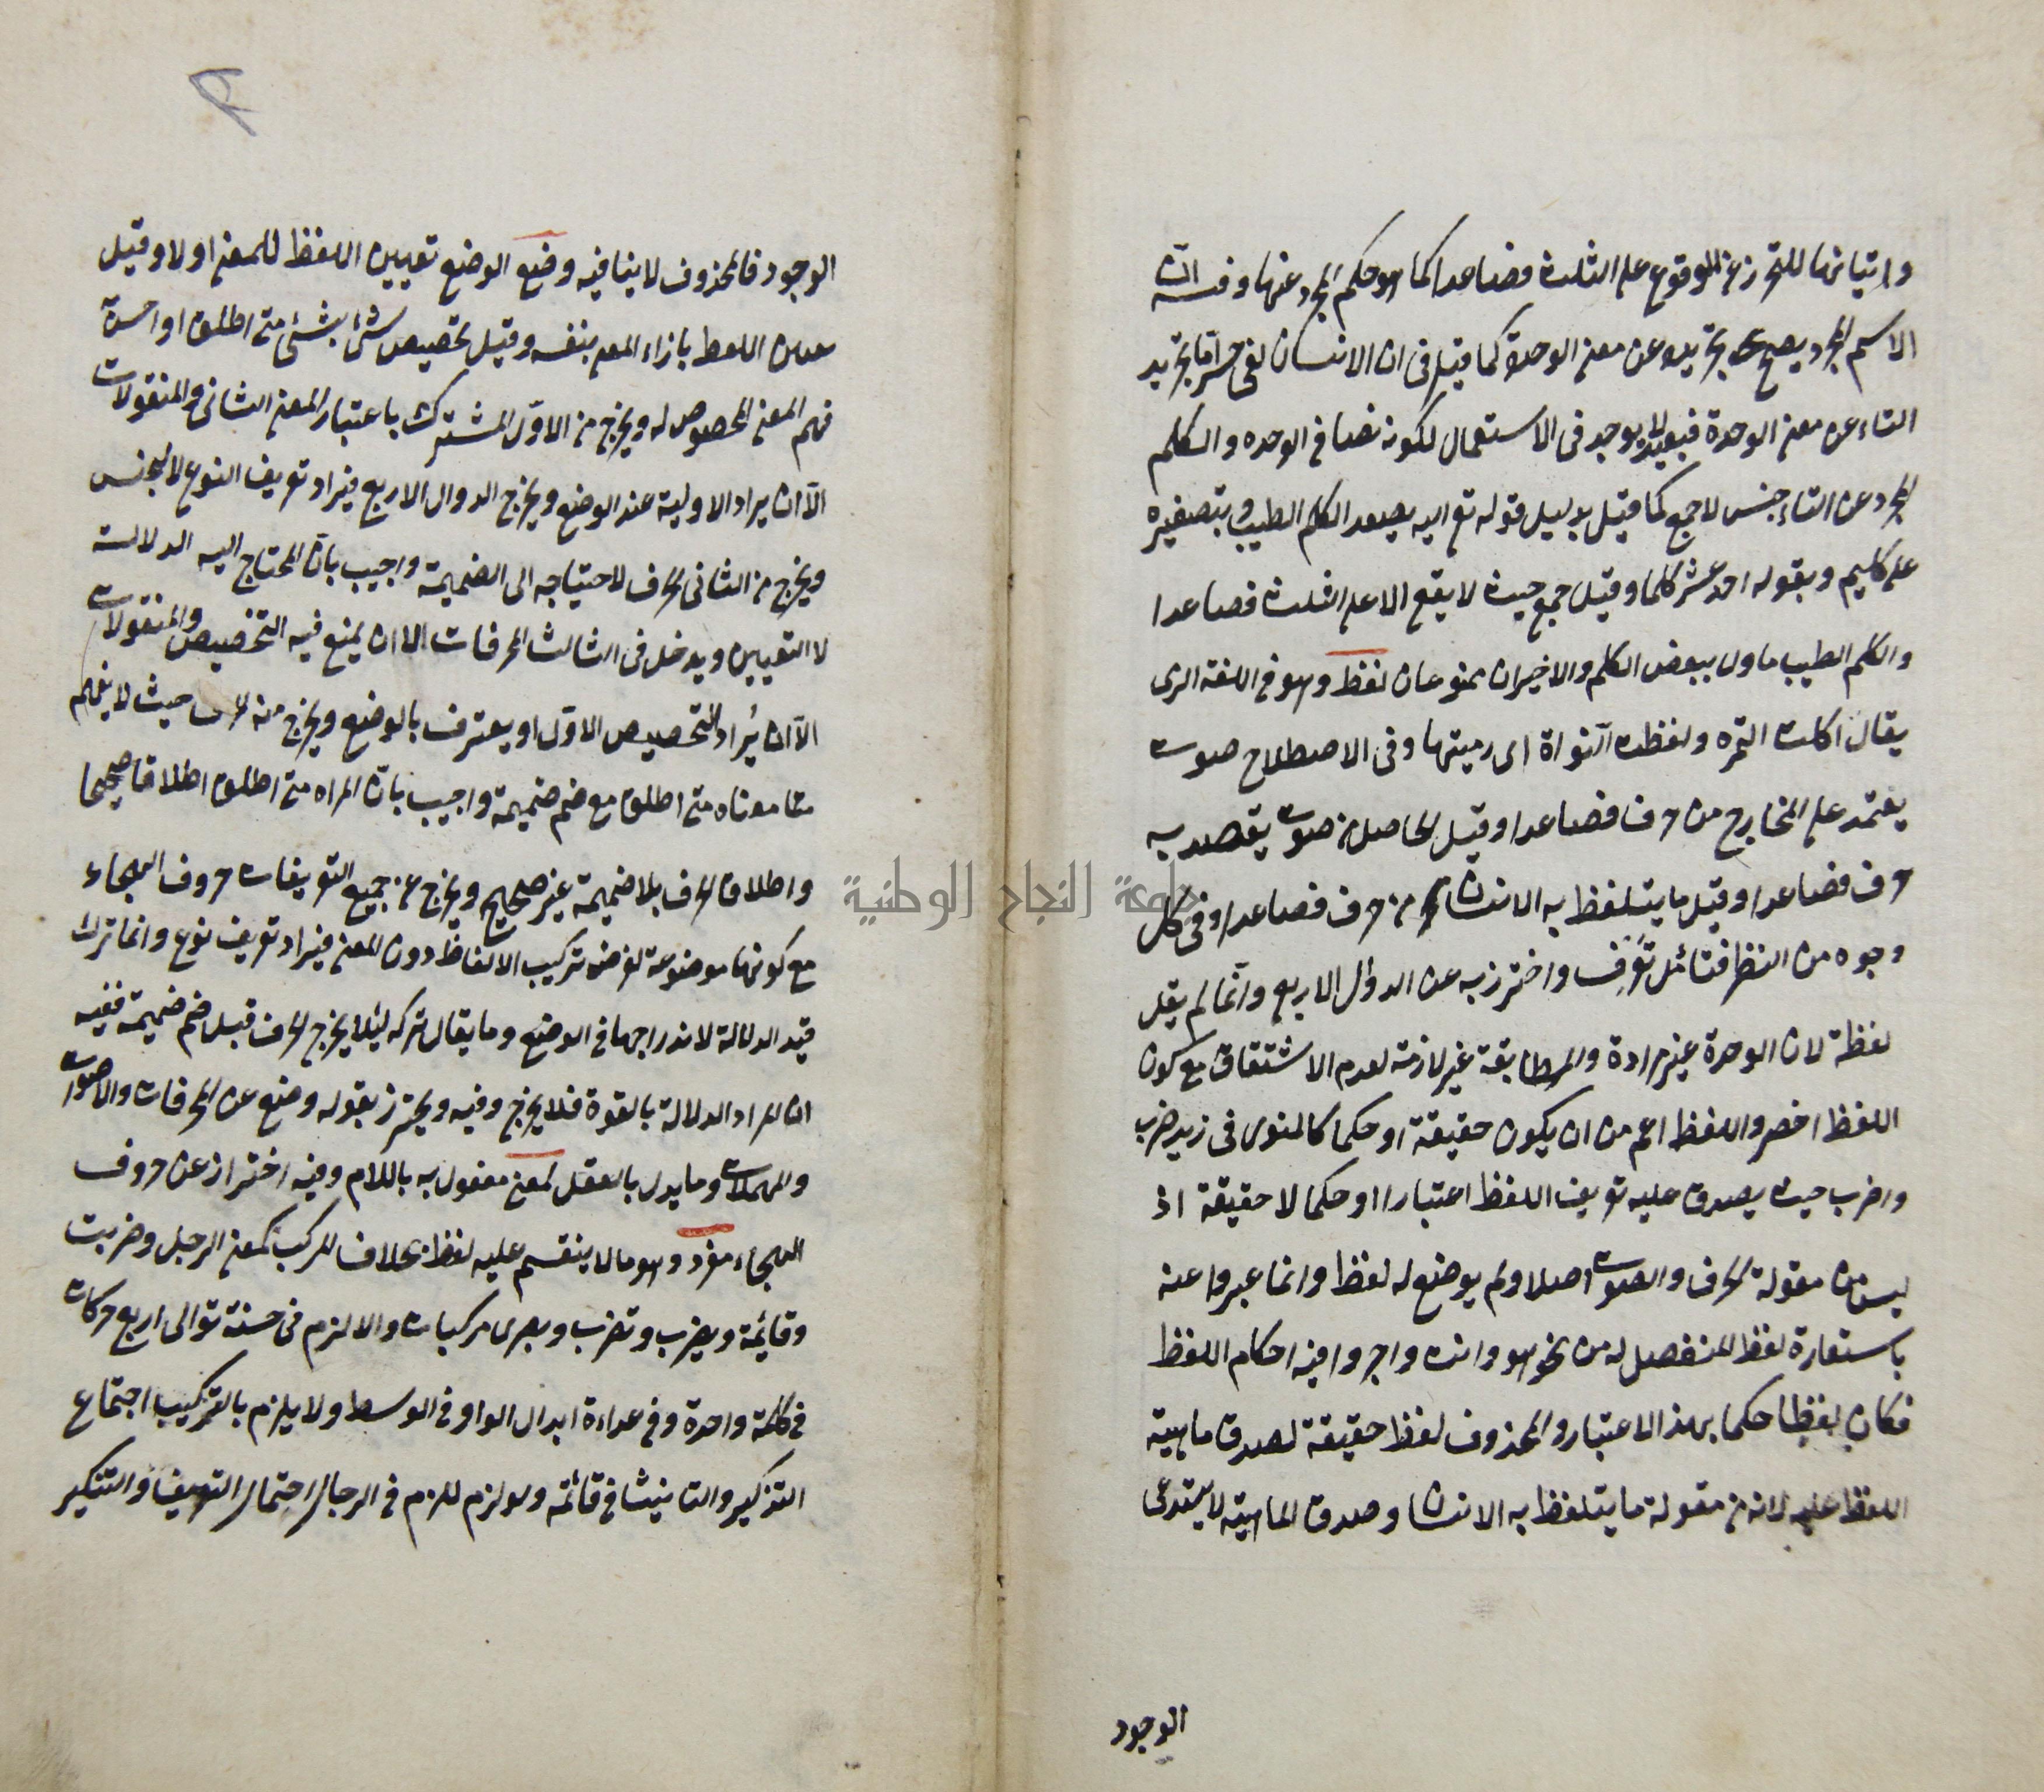 واتيانها للتحرز عن الوقوع على الثلث فصاعدا كما هو حكم المجرد عنها وفيه ان
الاسم المجرد يصح تجريده عن معنى الوحدة كما قيل في ان الانسان لفي خسر اما تجريد
التاء عن معنى الوحدة فبعيد لا يوجد في الاستعمال لكونه نصا في الوحده والكلم
المجرد عن التاء جنس لا جمع كما قيل بدليل قوله تع اليه يصعد الكلم الطيب وبتصغيره
على كليم وبقوله احد عشر كلما وقيل جمع حيث لا يقع الا على الثلث فصاعدا
والكلم الطيب ماول ببعض الكلم والاخيران ممنوعان لفظ وهو في اللغة الرمى
يقال اكلت التمره ولفظت النواة اى رميتها وفى الاصطلاح صوت
يعتمد على المخارج من حرف فصاعدا وقيل الحاصل من صوت يقصد به
حرف فصاعدا وقيل ما يتلفظ به الانسان من حرف فصاعدا وفى كل
وجوه من النظر فتأمل تعرف واحترز به عن الدوال الاربع وانما لم يقل
لفظة لان الوحدة غير مرادة والمطابقة غير لازمة لعدم الاشتقاق مع كون
اللفظ اخصر واللفظ اعم من ان يكون حقيقة او حكما كالمنوى فى زيد ضرب
واضرب حيث يصدق عليه تعريف اللفظ اعتبارا او حكما لا حقيقة اذ
ليس من مقولة الحرف والصوت اصلا ولم يوضع له لفظ وانما عبروا عنه
باستعارة لفظ المنفصل له من نحو هو وانت واجروا فيه احكام اللفظ
فكان لفظا حكما بهذا الاعتبار والمحذوف لفظ حقيقة لصدق ماهية
اللفظ عليه لانه من مقولة ما يتلفظ به الانسان وصدق الماهية لا يستدعى
الوجود
الوجود فالمحذوف لا ينافيه وضع الوضع تعيين اللفظ للمعنى اولا وقيل
تعيين اللفظ بازاء المعنى بنفسه وقيل تخصيص شئ بشئ متى اطلق او احس
فهم المعنى المخصوص له ويخرج من الاول المشترك باعتبار المعنى الثانى والمنقولات
الا ان يراد الاولية عند الوضع ويخرج الدوال الاربع فيراد تعريف النوع لا الجنس
ويخرج من الثانى الحرف لاحتياجه الى الضميمة واجيب بان المحتاج اليه الدلالة
لا التعيين ويدخل فى الثالث المحرفات الا ان يمنع فيه التخصيص والمنقولات
الا ان يراد التخصيص الاول او يعترف بالوضع ويخرج منه الحرف حيث لا يفهم
معناه متى اطلق مع ضم ضميمة واجيب بان المراد متى اطلق اطلاقا صحيحا
واطلاق الحرف بلا ضميمة غير صحيح ويخرج عن جميع التعريفات حروف الهجاء
مع كونها موضوعة لغرض تركيب الالفاظ دون المعنى فيراد تعريف نوع وانما ترك
قيد الدلالة لاندراجها في الوضع وما يقال تركه لئلا يخرج الحرف قبل ضم ضميمة ففيه
ان المراد الدلالة بالقوة فلا يخرج وفيه ويحترز بقوله وضع عن المحرفات والاصوات
والمهملات وما يدل بالعقل لمعنى مفعول به باللام وفيه احتراز عن حروف
الهجاء مفرد وهو ما لا ينقسم عليه لفظ بخلاف المركب كمعنى الرجل وضربت
وقائمة ويضرب وتضرب وبصرى مركبات والا لزم فى حسنة توالى اربع حركات
في كلمة واحدة وفي عداءة ابدال الواو في الوسط ولا يلزم بالتركيب اجتماع
التذكير والتأنيث في قائمة ولو لزم للزم في الرجال احتمال التعريف والتنكير
جامعة النجاح الوطنية